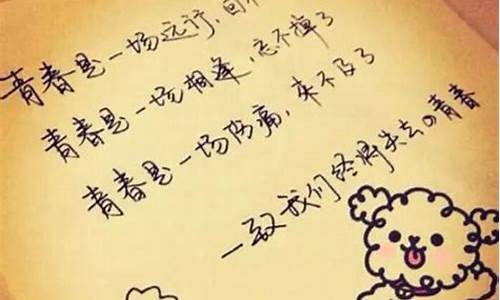 青春是一场远行，回不
青春是一场相逢，忘不掉了
青春是一场伤痛，来不及了
一致我们终将失去的青春